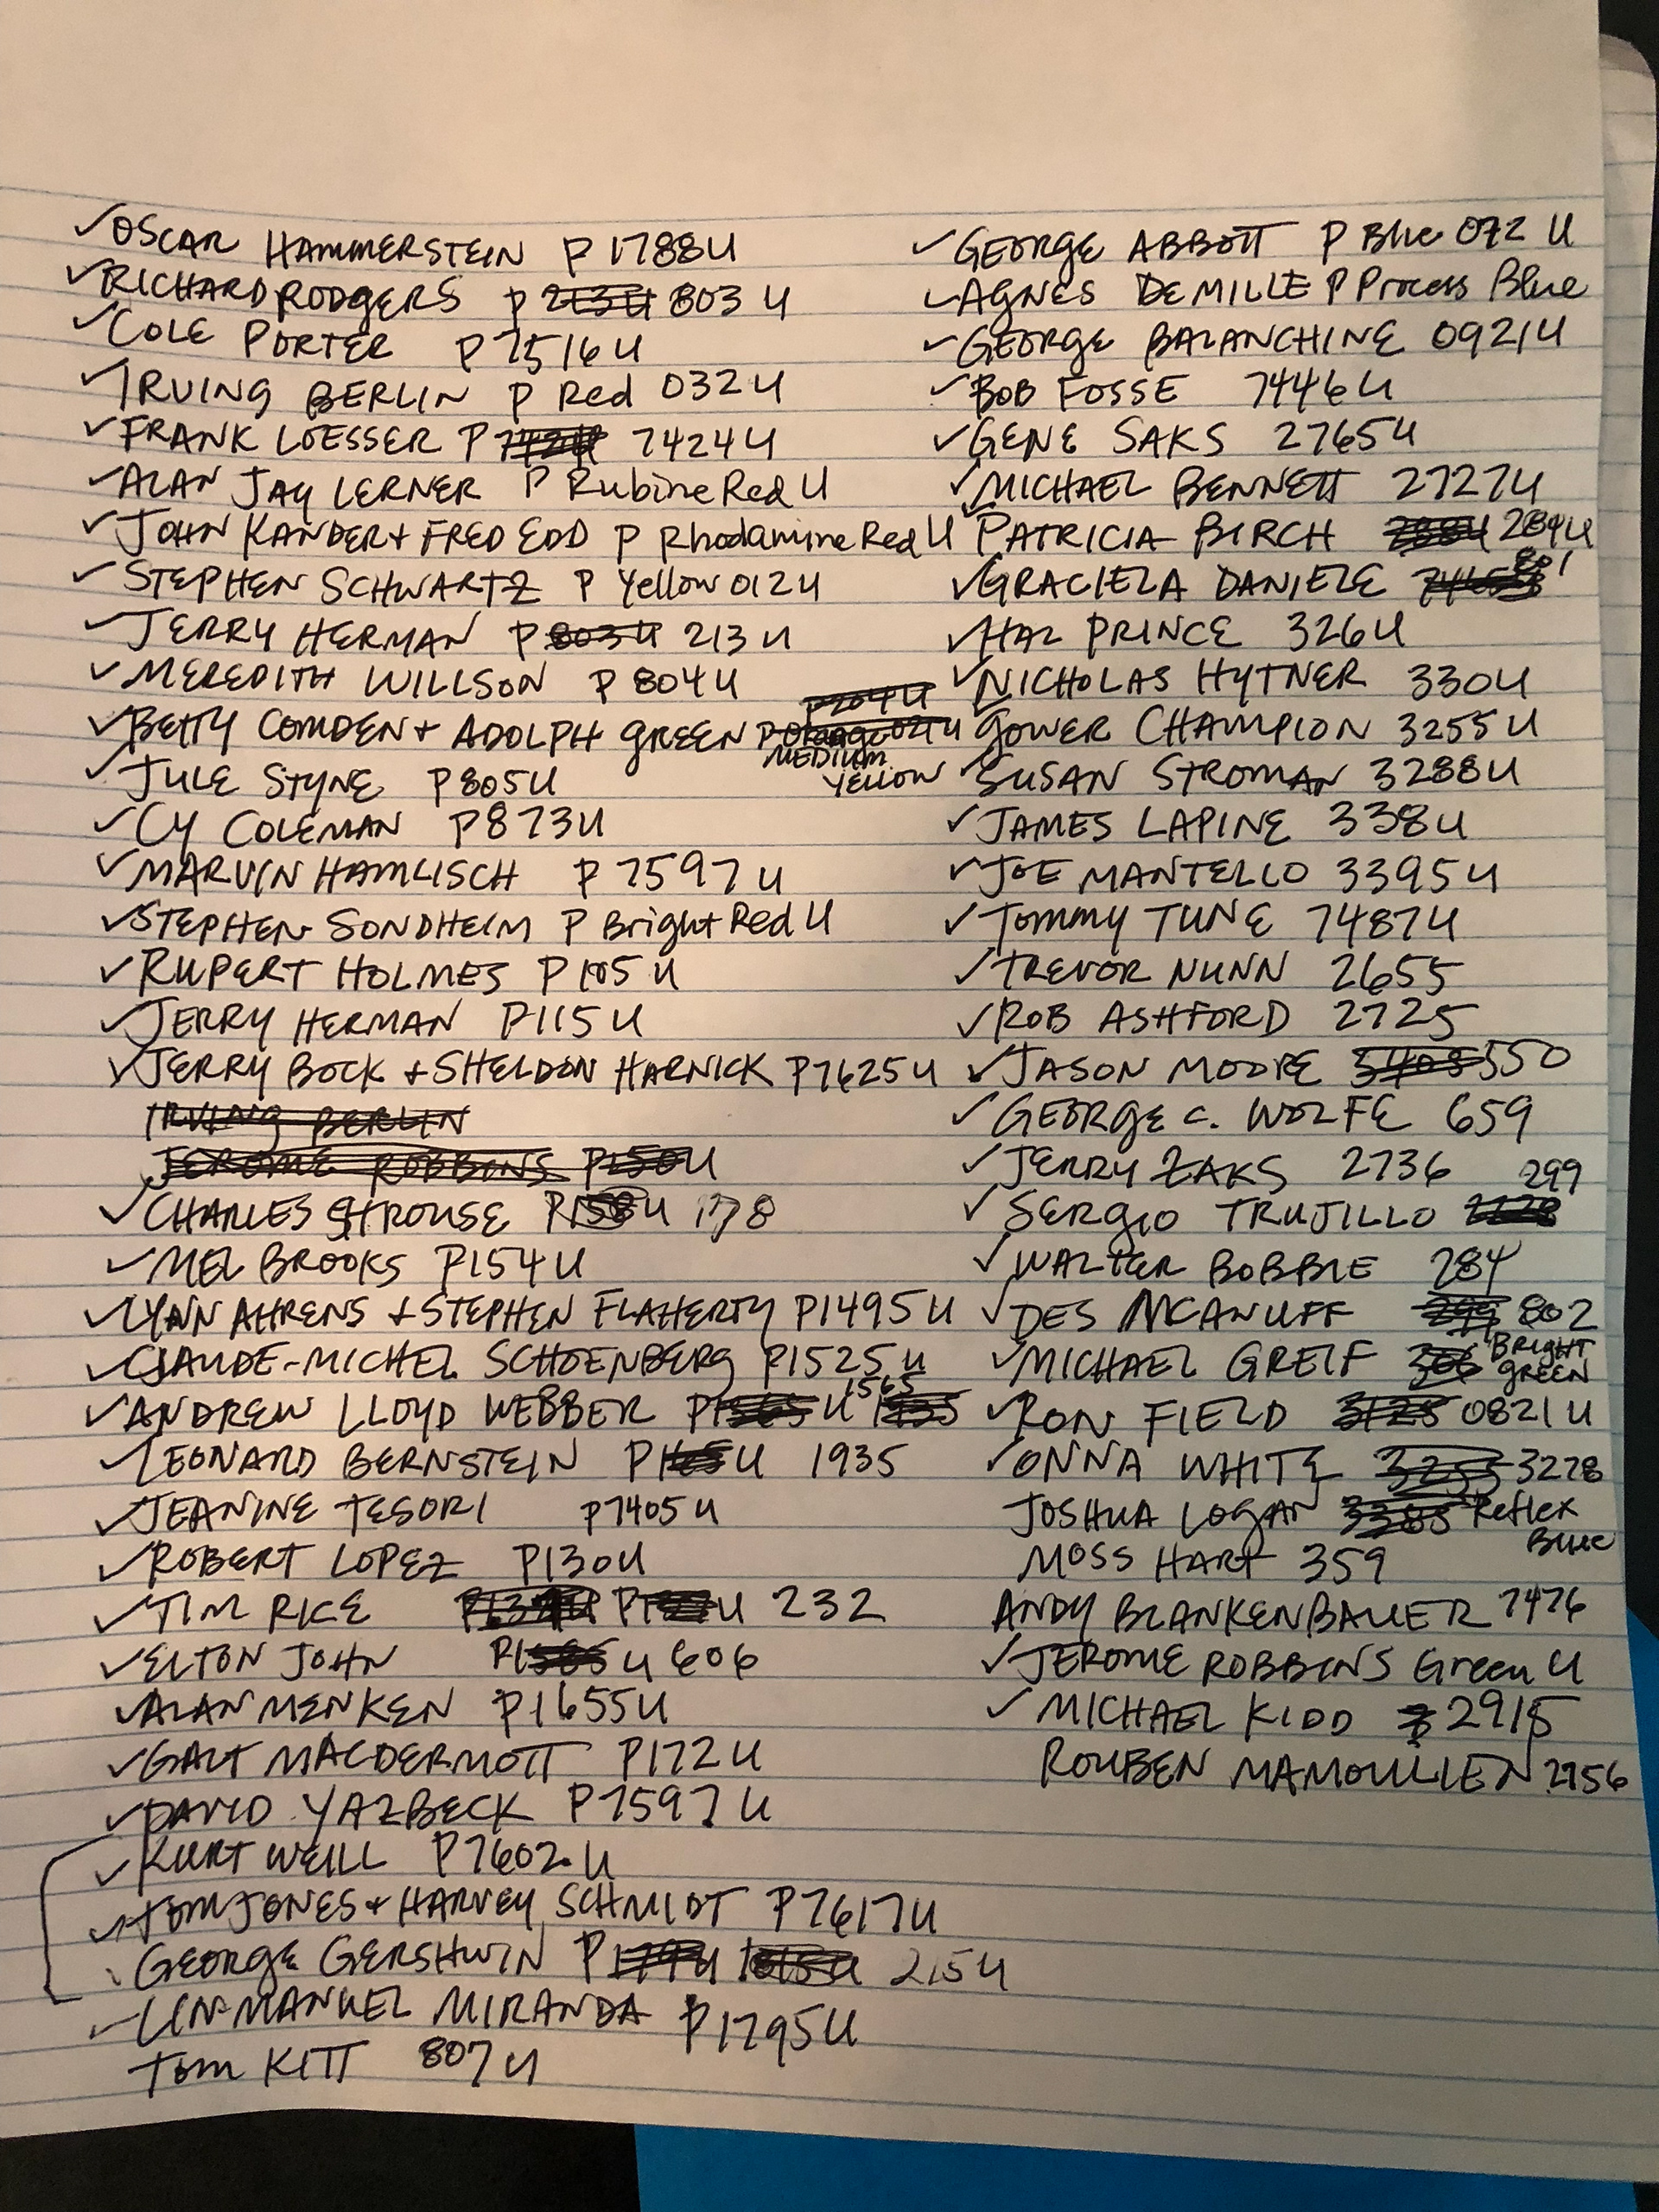 ✓OSCAR HAMMERSTEIN P 1788U
✓RICHARD RODGERS P 213U 803 U
✓COLE PORTER P 7516U
✓IRVING BERLIN P Red 032U
✓FRANK LOESSER P 7424U
✓ALAN JAY LERNER P Rubine Red U
✓JOHN KANDER + FRED EDD P Rhodamine Red U
✓STEPHEN SCHWARTZ P Yellow 012U
✓JERRY HERMAN P 803U 213U
✓MEREDITH WILLSON P 804U
✓BETTY COMDEN + ADOLPH GREEN P Orange 021U
MEDIUM
YELLOW
✓JULE STYNE P805U
✓CY COLEMAN P873U
✓MARVIN HAMLISCH P 7597U
✓STEPHEN SONDHEIM P Bright Red U
✓RUPERT HOLMES P165U
✓JERRY HERMAN P115U
✓JERRY BOCK + SHELDON HARNICK P7625U
IRVING BERLIN
JEROME ROBBINS P150U
✓CHARLES STROUSE P158U 178
✓MEL BROOKS P154U
✓LYNN AHRENS + STEPHEN FLAHERTY P1495U
✓CLAUDE-MICHEL SCHOENBERG P1525U
✓ANDREW LLOYD WEBBER P1565U 1565 1935
✓LEONARD BERNSTEIN P165U 1935
✓JEANINE TESORI P7405U
✓ROBERT LOPEZ P130U
✓TIM RICE 232
✓ELTON JOHN P1585U 606
✓ALAN MENKEN P1655U
✓GALT MACDERMOTT P172U
✓DAVID YAZBECK P7597U
✓KURT WEILL P7602U
✓TOM JONES + HARVEY SCHMIDT P7617U
GEORGE GERSHWIN P 215U
LIN-MANUEL MIRANDA P1795U
TOM KITT 807U
✓GEORGE ABBOTT P Blue 072 U
✓AGNES DEMILLE P Process Blue
✓GEORGE BALANCHINE 0921U
✓BOB FOSSE 7446U
✓GENE SAKS 2765U
✓MICHAEL BENNETT 2727U
✓PATRICIA BIRCH 284U
✓GRACIELA DANIELE 801
✓HAL PRINCE 326U
✓NICHOLAS HYTNER 330U
✓GOWER CHAMPION 3255U
✓SUSAN STROMAN 3288U
✓JAMES LAPINE 338U
✓JOE MANTELLO 3395U
✓TOMMY TUNE 7487U
✓TREVOR NUNN 2655
✓ROB ASHFORD 2725
✓JASON MOORE 5405 550
✓GEORGE C. WOLFE 659
✓JERRY ZAKS 2736
✓SERGIO TRUJILLO 299
✓WALTER BOBBIE 284
✓DES MCANUFF 299 802
✓MICHAEL GREIF 306 BRIGHT
GREEN
✓RON FIELD 3125 0821U
✓ONNA WHITE 3255 3278
JOSHUA LOGAN 3385 Reflex
Blue
MOSS HART 359
ANDY BLANKENBAUER 7476
✓JEROME ROBBINS Green U
✓MICHAEL KIDD 2915
ROUBEN MAMOULIEN 2756